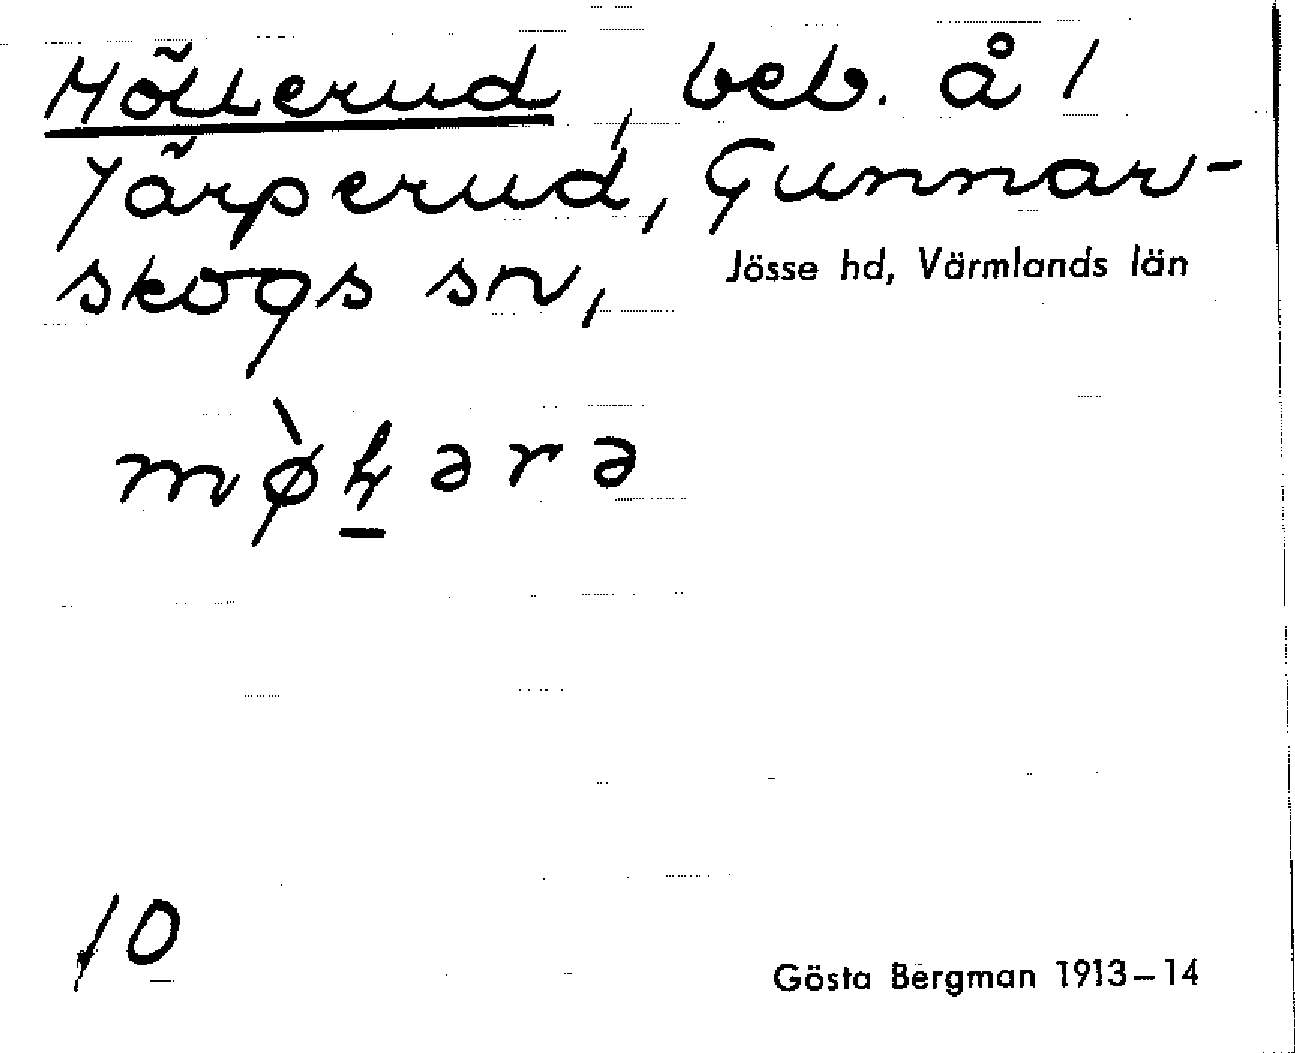 Möllerud, beb. å 1
Järperud, Gunnar-
skogs sn, Jösse hd, Värmlands län
mø̀ẖərə
10
Gösta Bergman 1913–14